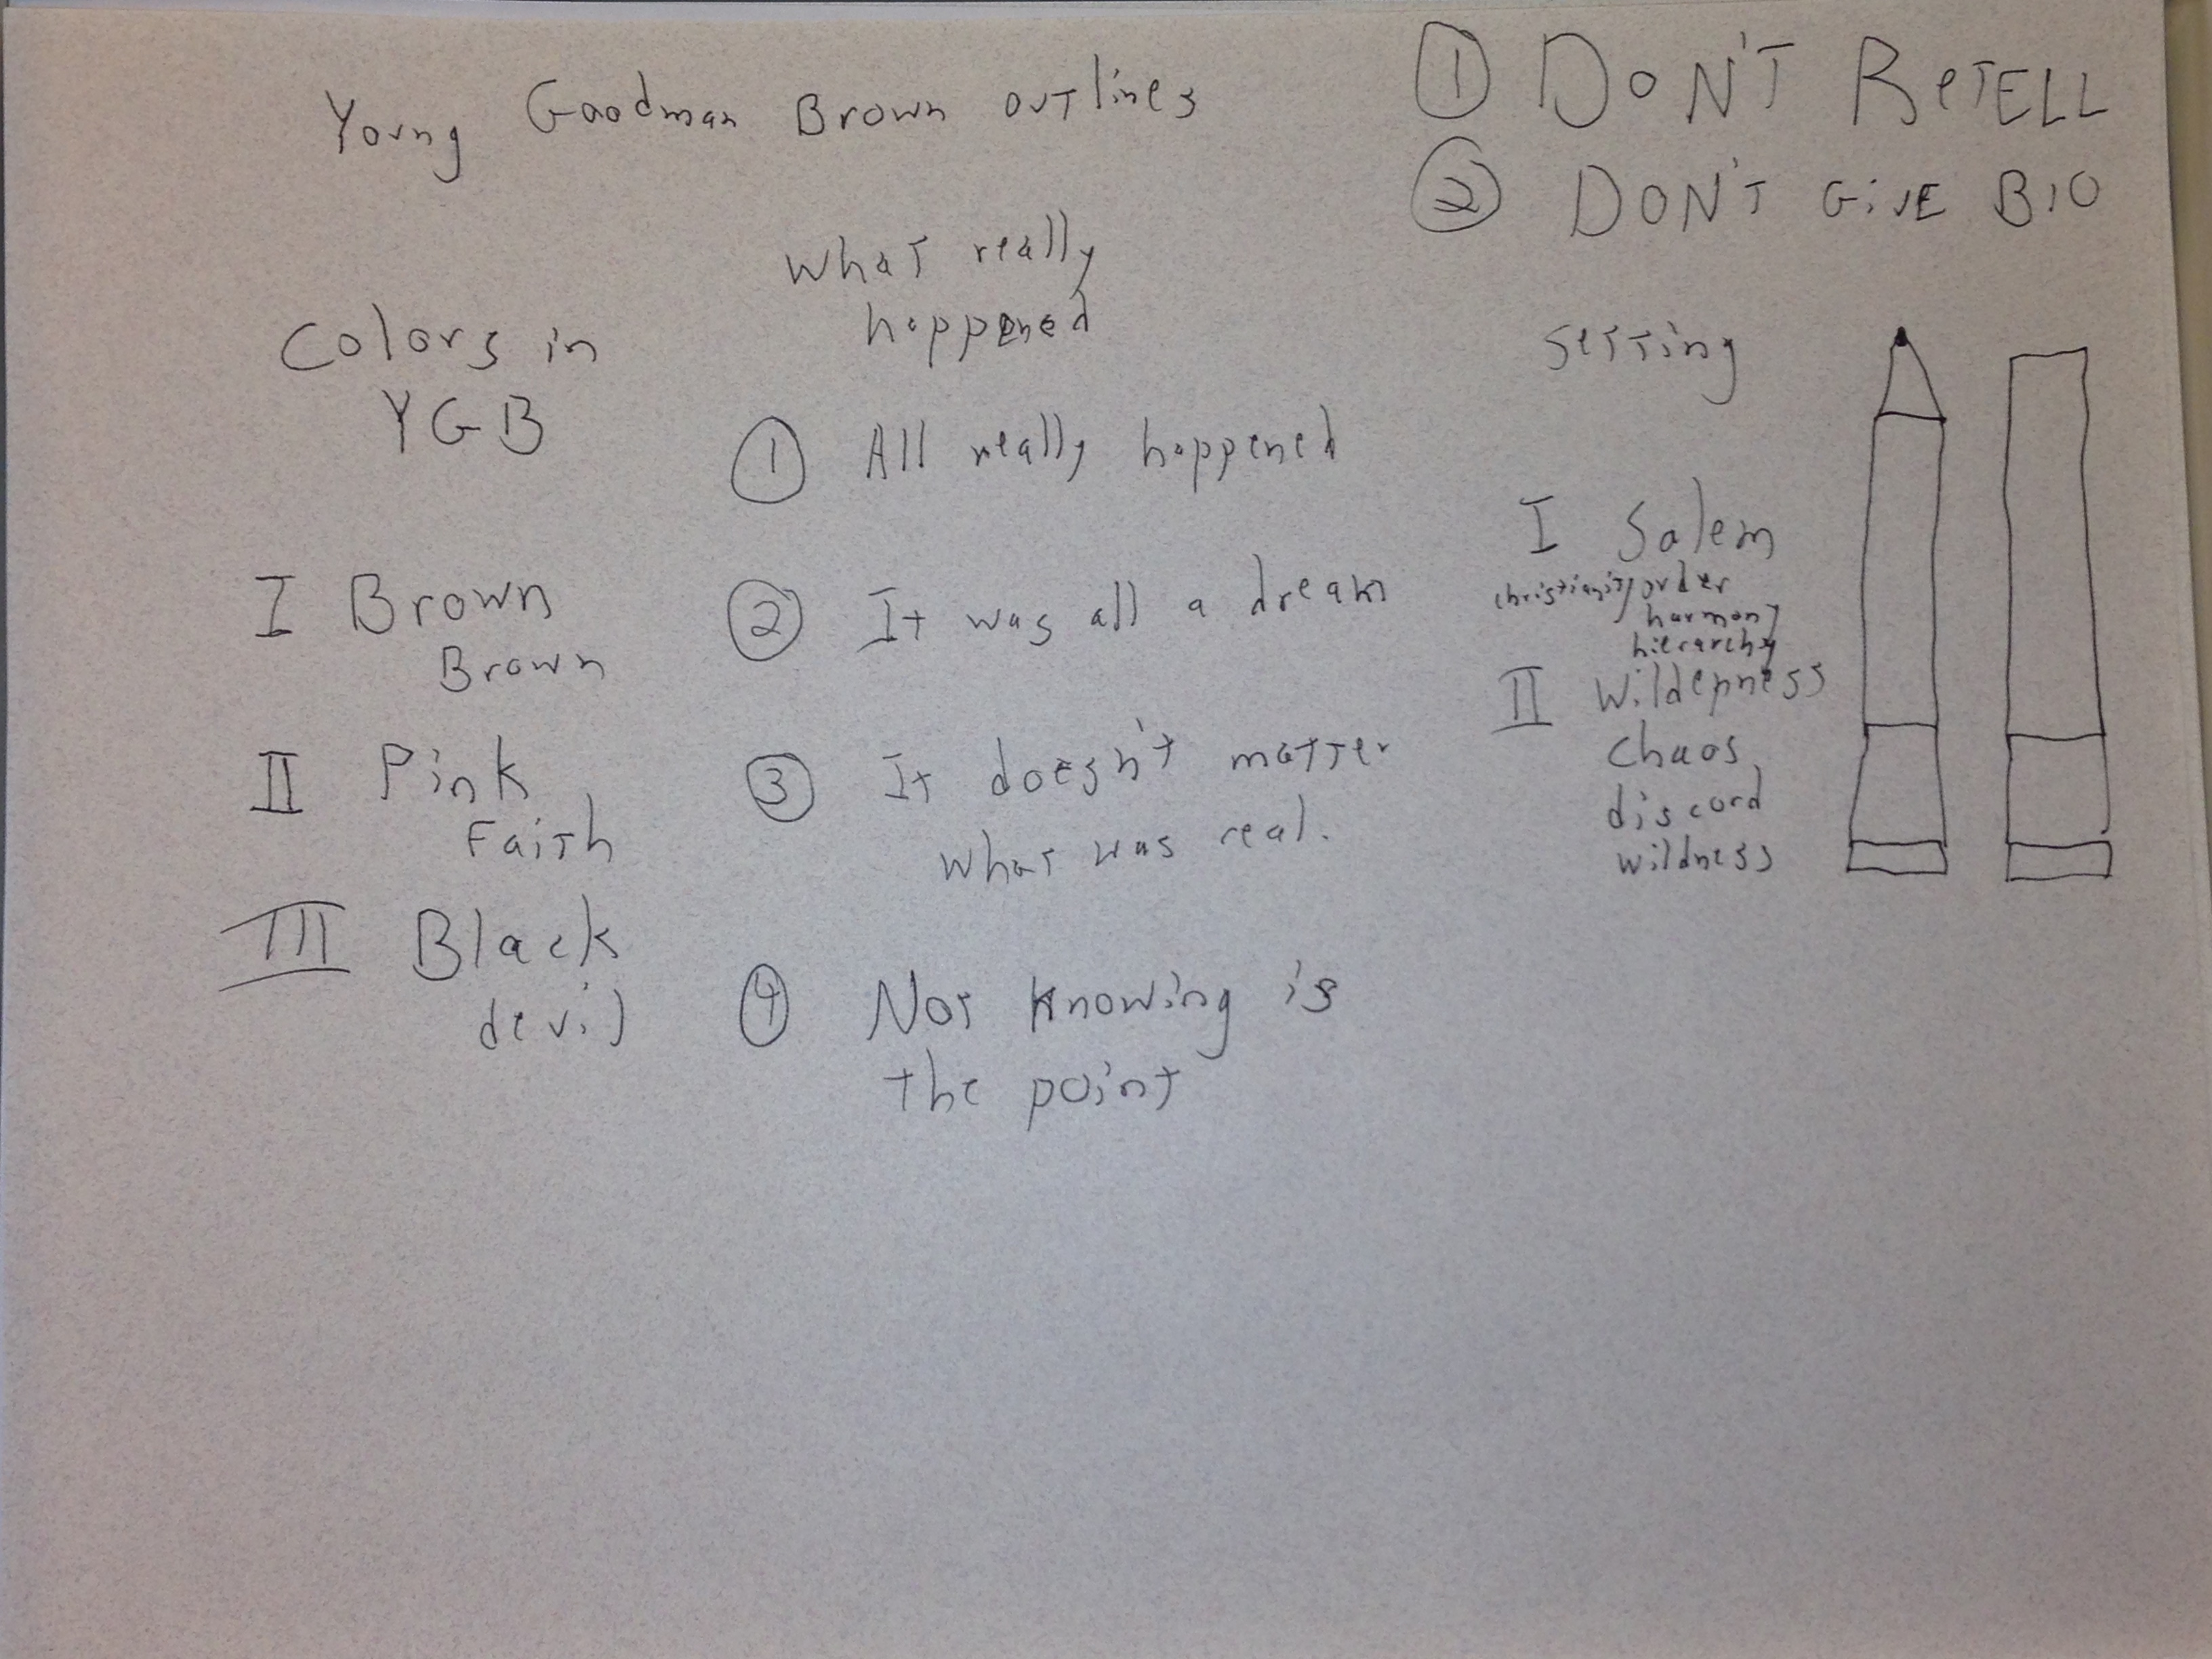 Young Goodman Brown outlines
① DON'T RETELL
② DON'T GIVE BIO
Colors in
YGB
I Brown
Brown
II Pink
Faith
III Black
devil
What really
happened
① All really happened
② It was all a dream
③ It doesn't matter
what was real.
④ Not knowing is
the point
Setting
I Salem
christianity/order
harmony
hierarchy
II Wilderness
chaos
discord
wildness